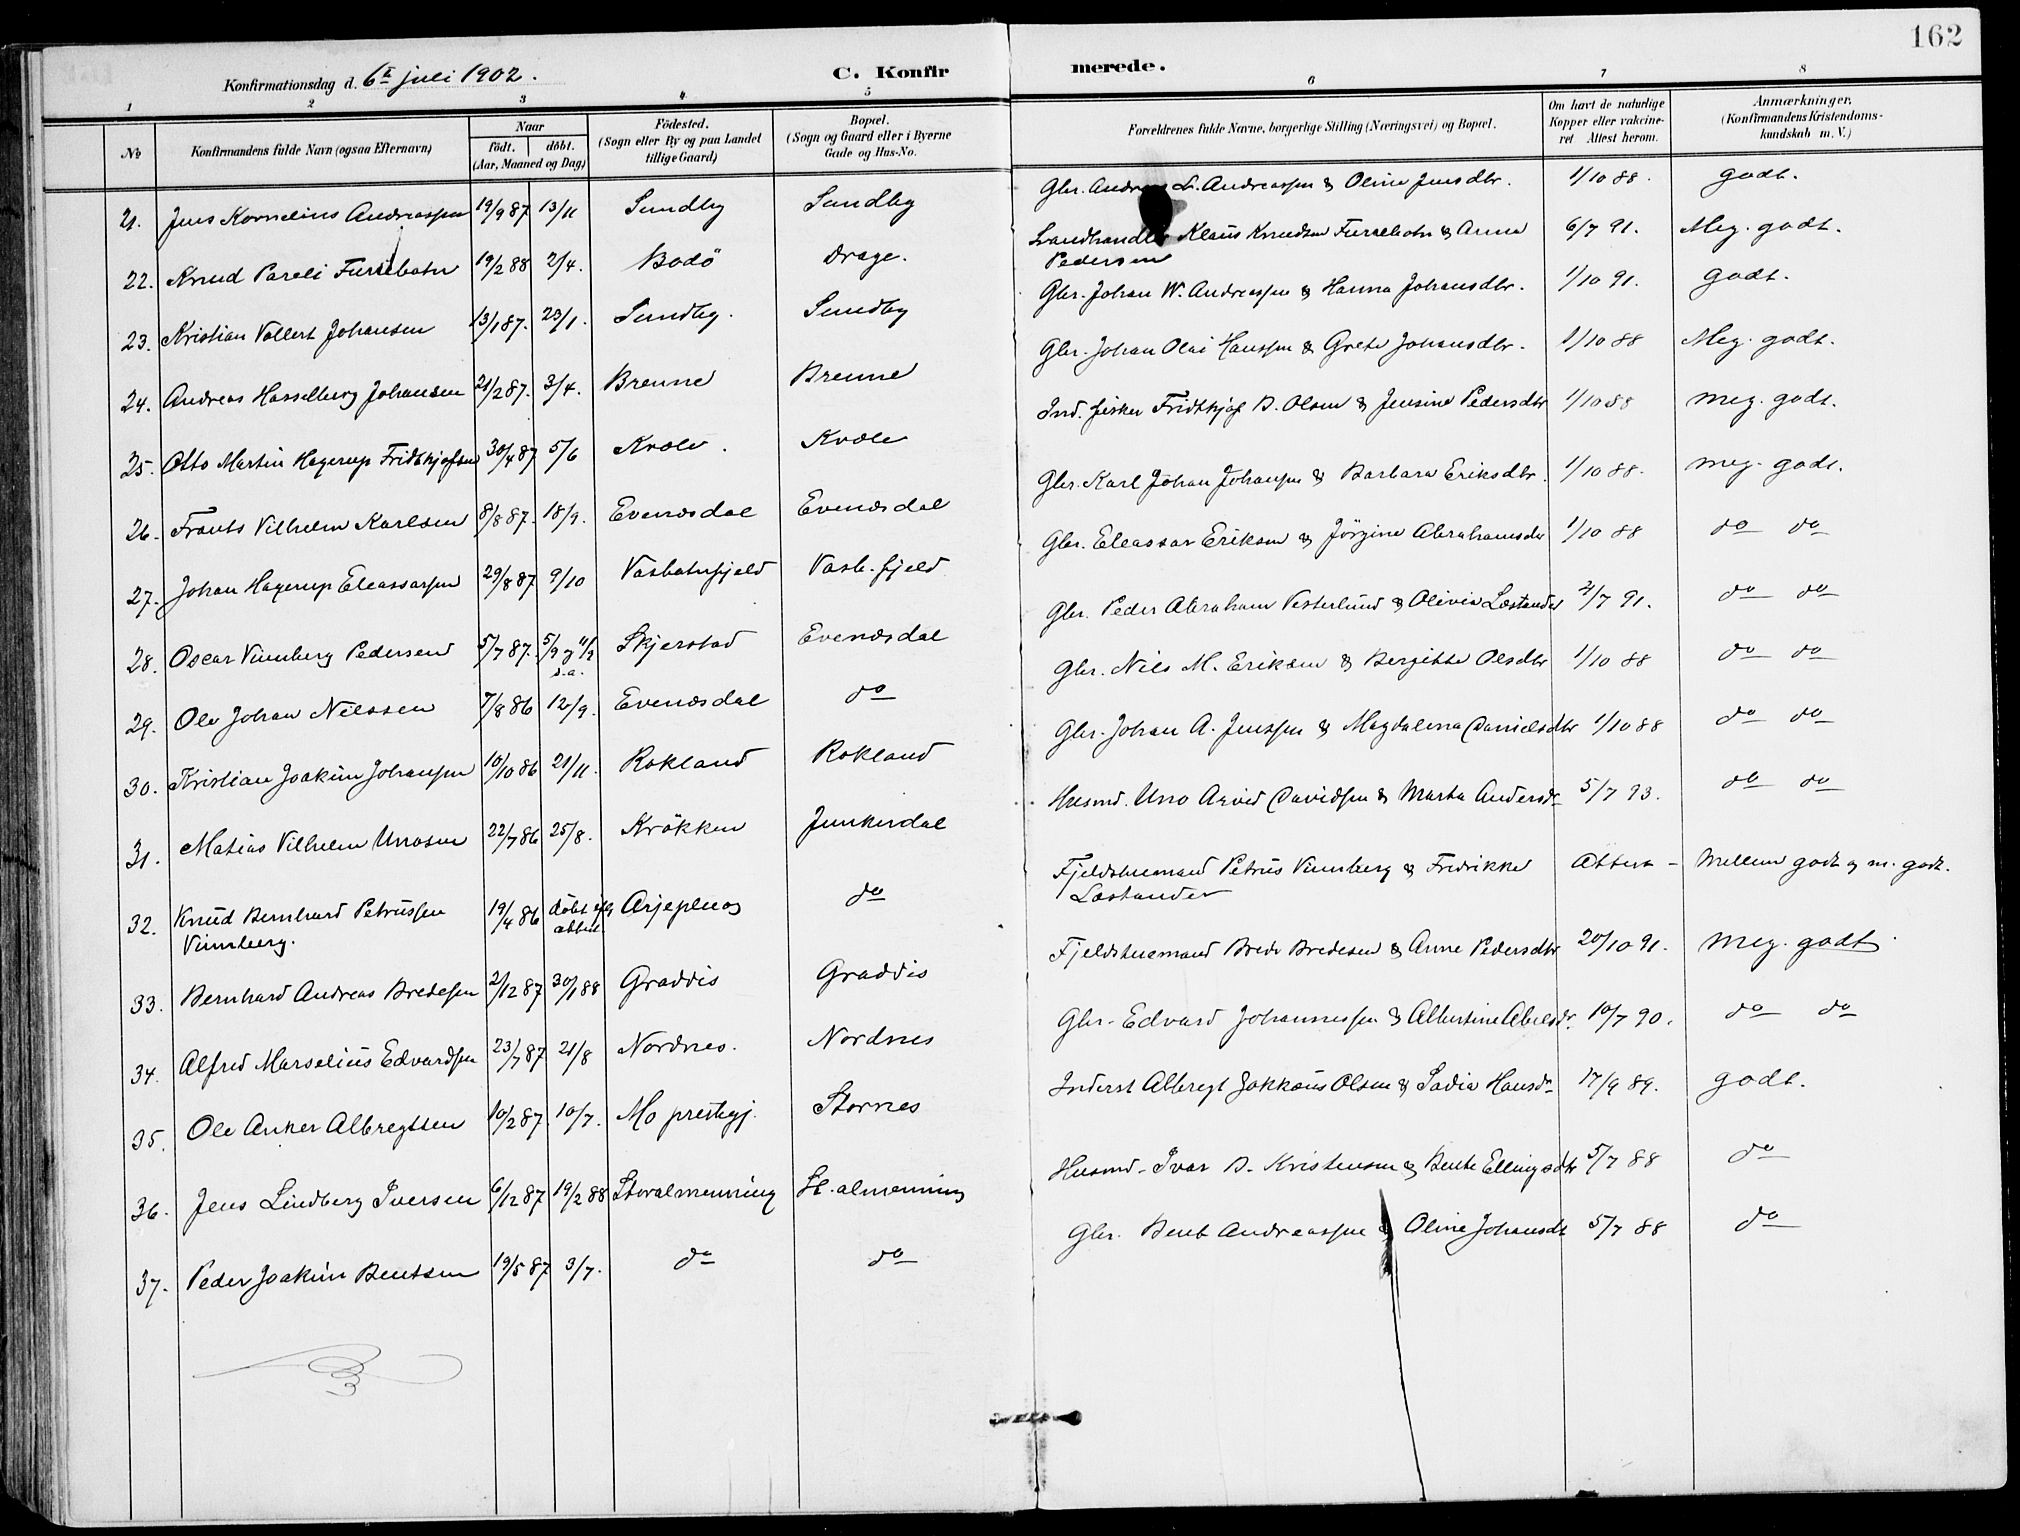 162
Konfirmationsdag d. 6te juli 1902.
C. Konfirmerede.
1 2 3 4 5 6 7 8
No
Konfirmandens fulde Navn (ogsaa Efternavn)
Naar
födt. döbt.
(Aar, Maaned og Dag)
Födested.
(Sogn eller By og paa Landet
tillige Gaard)
Bopæl.
(Sogn og Gaard eller i Byerne
Gade og Hus-No.
Forældrenes fulde Navne, borgerlige Stilling (Næringsvei) og Bopæl.
Om havt de naturlige
Kopper eller vakcine-
ret Attest herom.
Anmærkninger,
(Konfirmandens Kristendoms-
kundskab m. V.)
21. Jens Kornelius Andreassen 19/9 87 13/11 Sundby Sundby Gbr. Andreas L. Andreassen & Oline Jensdtr. 1/10 88. godt.
22. Knud Pareli Furrebotn 19/2 88 2/4. Bodö Drage. Landhandler Klaus Knudsen Furrebotn & Anna 6/7 91. Meg. godt.
Pedersen
23. Kristian Vollert Johansen 13/1 87. 23/1. Sundby. Sundby Gbr. Johan W. Andreassen & Hanna Johansdtr. 1/10 91. godt.
24. Andreas Hasselberg Johansen 21/2 87. 3/4. Brenne Brenne Gbr. Johan Olai Hanssen & Grete Johansdtr. 1/10 88 Meg. godt.
25. Otto Martin Hagerup Fridtkjofsen 30/4 87 5/6 Kvæle. Kvæle Ind. fisker Fridtkjof B. Olsen & Jensine Pedersdtr 1/10 88 meg. godt.
26. Frants Vilhelm Karlsen 8/8 87. 18/9. Evenæsdal Evenæsdal Gbr. Karl Johan Johansen & Barbara Eriksdtr. 1/10 88. meg. godt.
27. Johan Hagerup Eleassarsen 29/8 87 9/10 Vasbotnfjeld Vasb. fjeld Gbr. Eleassar Eriksen & Jörgine Abrahamsdtr 1/10 88 do do
28. Oscar Vinnberg Pedersen 5/7 87. 5/9 Skjerstad Evenæsdal Gbr. Peder Abraham Vesterlund & Olivia Læstander 2/7 91. do do
s.a.
29. Ole Johan Nilssen 7/8 86 12/9. Evenæsdal do Gbr. Nils M. Eriksen & Bergitte Olsdtr 1/10 88 do do
30. Kristian Joakim Johansen 10/10 86 21/11. Rokland Rokland Gbr. Johan A. Jenssen & Magdalena Danielsdtr 1/10 88 do do
31. Matias Vilhelm Unosen 22/7 86 25/8. Krökken Junkerdal Husmd. Uno Arvid Davidsen & Marta Andersdr 5/7 93. do do
32. Knud Bernhard Petrussen 19/4 86 döbt Arjepluog do Fjeldstuemand Petrus Vinnberg & Fredrikke Attest - mellem godt og m. godt.
Vinnberg. Læstander
33. Bernhard Andreas Bredesen 2/12 87 30/1 88 Graddis Graddis Fjeldstuemand Brede Bredesen & Anne Pedersdtr 20/10 91. meg. godt.
34. Alfred Marselius Edvardsen 23/7 87 21/8 Nordnes. Nordnes Gbr. Edvard Johannessen & Albertine Abelsdr. 10/7 90. do do
35. Ole Anker Albregtsen 10/2 87 10/7. Mo prestegj. Stornes Inderst Albregt Jakkæus Olsen & Sadia Hansdr 17/9 89. godt.
36. Jens Lindberg Iversen 6/12 87 19/2 88 Storalmenning St. almenning Husmd. Ivar B. Kristensen & Bente Ellingsdtr 5/7 88 do
37. Peder Joakim Bentsen 19/5 87 3/7. do do Gbr. Bent Andreassen & Oline Johansdt 5/7 88 do